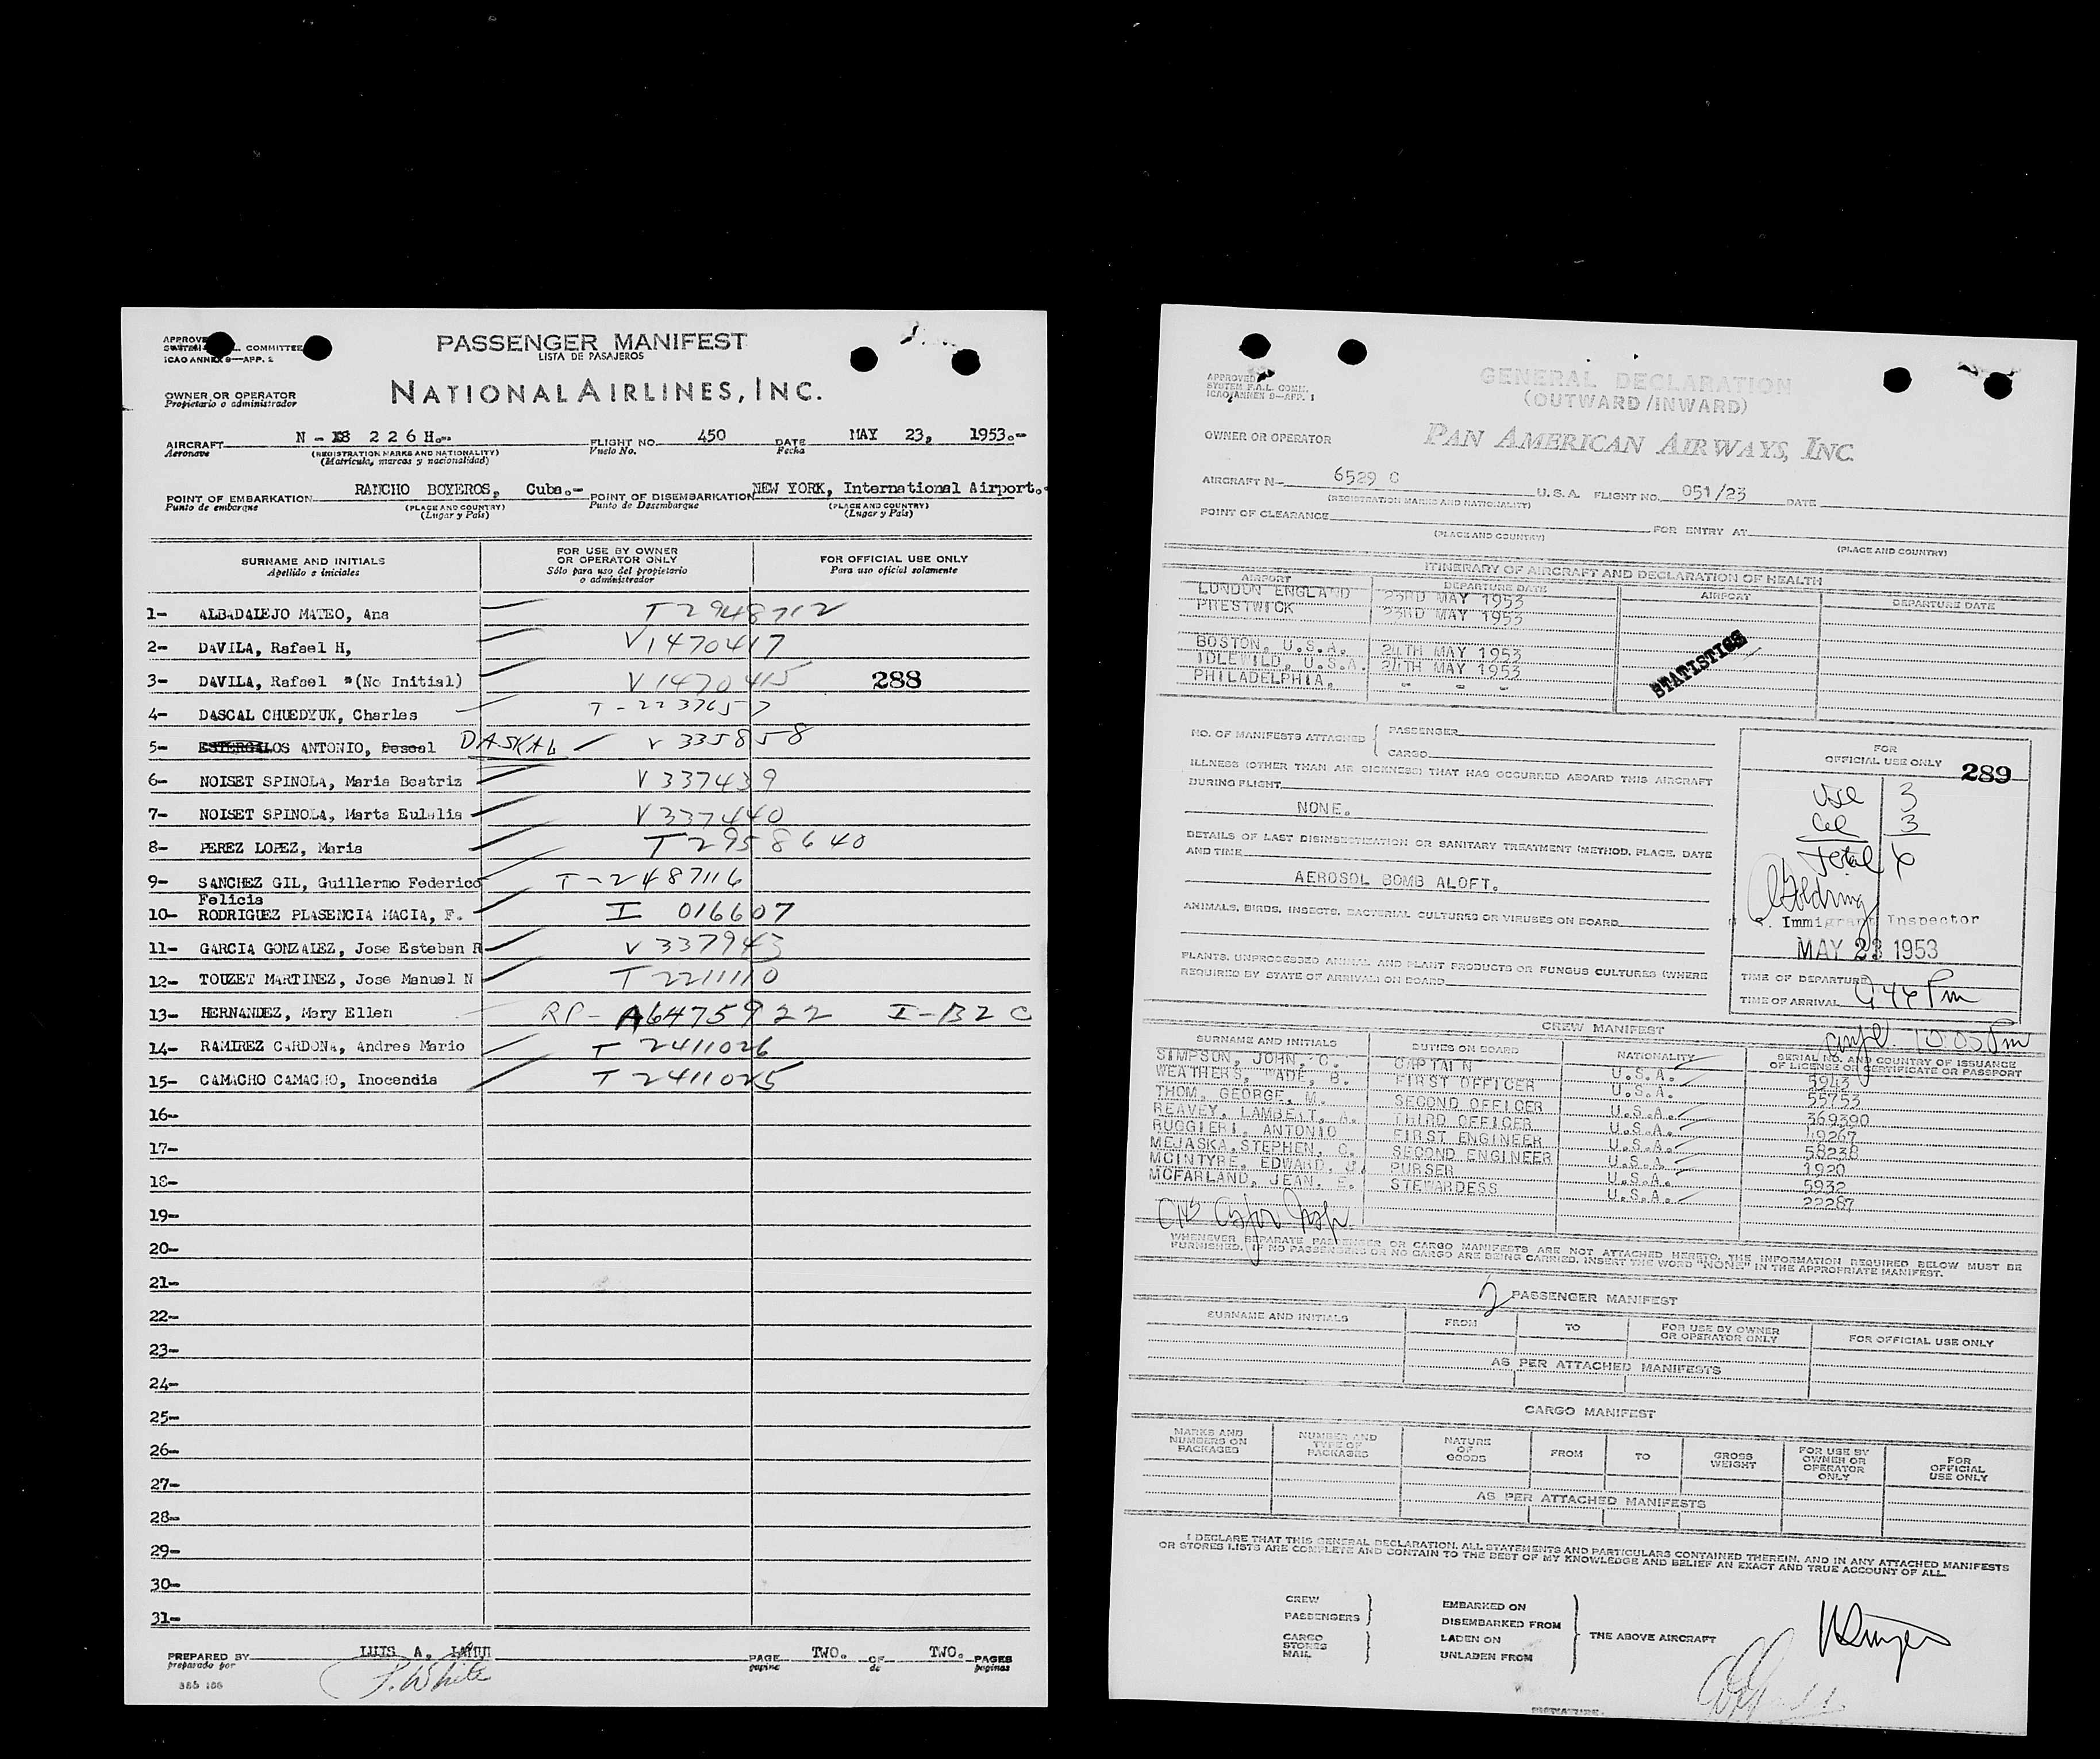 PASSENGER MANIFEST
LISTA DE PASAJEROS
COMMITTEE
ICAO ANNEX 9—APP. 2
NATIONAL AIRLINES, INC.
OWNER OR OPERATOR
Propietario o administrador
AIRCRAFT N - 226H.- FLIGHT NO. 450 DATE MAY 23, 1953.-
Aeronave (REGISTRATION MARKS AND NATIONALITY) Vuelo No. Fecha
(Matrícula, marcas y nacionalidad)
POINT OF EMBARKATION RANCHO BOYEROS, Cuba.- POINT OF DISEMBARKATION NEW YORK, International Airport.-
Punto de embarque (PLACE AND COUNTRY) Punto de Desembarque (PLACE AND COUNTRY)
(Lugar y País) (Lugar y País)
SURNAME AND INITIALS FOR USE BY OWNER OR OPERATOR ONLY FOR OFFICIAL USE ONLY
Apellido e iniciales Sólo para uso del propietario o administrador Para uso oficial solamente
1- ALBADALEJO MATEO, Ana T 2948712
2- DAVILA, Rafael H, V1470417
3- DAVILA, Rafael *(No Initial) V 1470415 288
4- DASCAL CHUEDYUK, Charles T-2237657
5- ESTERGALOS ANTONIO, Dascal DASKAL V 335858
6- NOISET SPINOLA, Maria Beatriz V 337439
7- NOISET SPINOLA, Marta Eulalia V 337440
8- PEREZ LOPEZ, Maria T 2958640
9- SANCHEZ GIL, Guillermo Federico T-2487116
Felicia
10- RODRIGUEZ PLASENCIA MACIA, F. I 016607
11- GARCIA GONZALEZ, Jose Esteban R V 337943
12- TOUZET MARTINEZ, Jose Manuel N T 2211110
13- HERNANDEZ, Mary Ellen RP- A6475922 I-B2 C
14- RAMIREZ CARDONA, Andres Mario T 2411026
15- CAMACHO CAMACHO, Inocendia T 2411025
16-
17-
18-
19-
20-
21-
22-
23-
24-
25-
26-
27-
28-
29-
30-
31-
PREPARED BY LUIS A. PAGE TWO. OF TWO. PAGES
preparado por pagina de paginas
J. White
GENERAL DECLARATION
(OUTWARD/INWARD)
APPROVED
SYSTEM F.A.L. COMM.
ICAO/ANNEX 9—APP. 1
OWNER OR OPERATOR PAN AMERICAN AIRWAYS, INC.
AIRCRAFT N- 6529 C U.S.A. FLIGHT NO. 051/23 DATE
(REGISTRATION MARKS AND NATIONALITY)
POINT OF CLEARANCE FOR ENTRY AT
(PLACE AND COUNTRY) (PLACE AND COUNTRY)
ITINERARY OF AIRCRAFT AND DECLARATION OF HEALTH
AIRPORT DEPARTURE DATE AIRPORT DEPARTURE DATE
LONDON ENGLAND 23RD MAY 1953
PRESTWICK 23RD MAY 1953
BOSTON, U.S.A. 24TH MAY 1953
IDLEWILD, U.S.A. 24TH MAY 1953
PHILADELPHIA. - - -
STATISTICS
NO. OF MANIFESTS ATTACHED PASSENGER
CARGO
ILLNESS (OTHER THAN AIR SICKNESS) THAT HAS OCCURRED ABOARD THIS AIRCRAFT
DURING FLIGHT
NONE.
DETAILS OF LAST DISINSECTIZATION OR SANITARY TREATMENT (METHOD, PLACE, DATE
AND TIME
AEROSOL BOMB ALOFT.
ANIMALS, BIRDS, INSECTS, BACTERIAL CULTURES OR VIRUSES ON BOARD
PLANTS, UNPROCESSED ANIMAL AND PLANT PRODUCTS OR FUNGUS CULTURES (WHERE
REQUIRED BY STATE OF ARRIVAL) ON BOARD
FOR
OFFICIAL USE ONLY 289
USC 3
3
Total 6
Immigrant Inspector
MAY 23 1953
TIME OF DEPARTURE
TIME OF ARRIVAL 944 Pm
10:05 Pm
CREW MANIFEST
SURNAME AND INITIALS DUTIES ON BOARD NATIONALITY SERIAL NO. AND COUNTRY OF ISSUANCE OF LICENSE OR CERTIFICATE OR PASSPORT
SIMPSON, JOHN, C. CAPTAIN U.S.A. 5943
WEATHERS, WADE, B. FIRST OFFICER U.S.A. 55753
THOM, GEORGE, M. SECOND OFFICER U.S.A. 369390
REAVEY, LAMBERT, A. THIRD OFFICER U.S.A. 49267
RUGGIERI, ANTONIO FIRST ENGINEER U.S.A. 58238
MEJASKA, STEPHEN, C. SECOND ENGINEER U.S.A. 1920
MCINTYRE, EDWARD, J. PURSER U.S.A. 5932
MCFARLAND, JEAN, E. STEWARDESS U.S.A. 22287
WHENEVER SEPARATE PASSENGER OR CARGO MANIFESTS ARE NOT ATTACHED HERETO, THE INFORMATION REQUIRED BELOW MUST BE
FURNISHED. IF NO PASSENGERS OR NO CARGO ARE BEING CARRIED, INSERT THE WORD "NONE" IN THE APPROPRIATE MANIFEST.
2 PASSENGER MANIFEST
SURNAME AND INITIALS FROM TO FOR USE BY OWNER OR OPERATOR ONLY FOR OFFICIAL USE ONLY
AS PER ATTACHED MANIFESTS
CARGO MANIFEST
MARKS AND NUMBERS ON PACKAGES NUMBER AND TYPE OF PACKAGES NATURE OF GOODS FROM TO GROSS WEIGHT FOR USE BY OWNER OR OPERATOR ONLY FOR OFFICIAL USE ONLY
AS PER ATTACHED MANIFESTS
I DECLARE THAT THIS GENERAL DECLARATION, ALL STATEMENTS AND PARTICULARS CONTAINED THEREIN, AND IN ANY ATTACHED MANIFESTS
OR STORES LISTS ARE COMPLETE AND CONTAIN TO THE BEST OF MY KNOWLEDGE AND BELIEF AN EXACT AND TRUE ACCOUNT OF ALL
CREW EMBARKED ON
PASSENGERS DISEMBARKED FROM
CARGO LADEN ON THE ABOVE AIRCRAFT
STORES
MAIL UNLADEN FROM
SIGNATURE